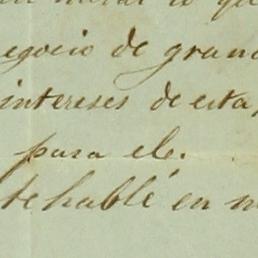 que
negocio de gran
intereses de esta,
para ele.
te hablé en